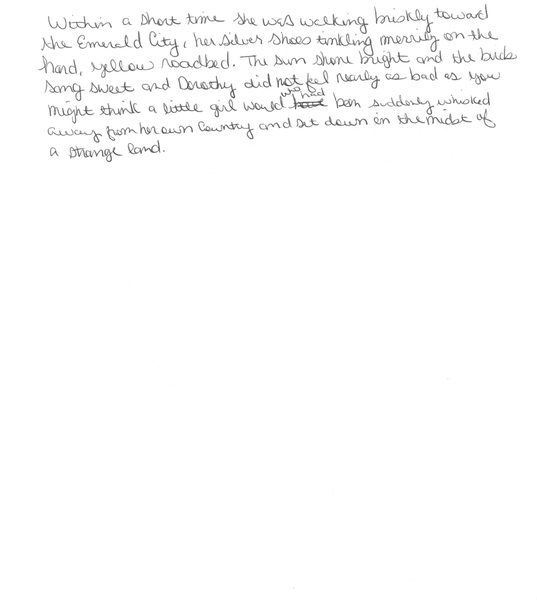 Within a short time she was walking briskly toward
the Emerald City, her Silver Shoes tinkling merrily on the
hard, yellow roadbed. The sun shone bright and the birds
sang sweet and Dorothy did not feel nearly as bad as you
might think a little girl would who had been suddenly whisked
away from her own Country and set down in the midst of
a strange land.